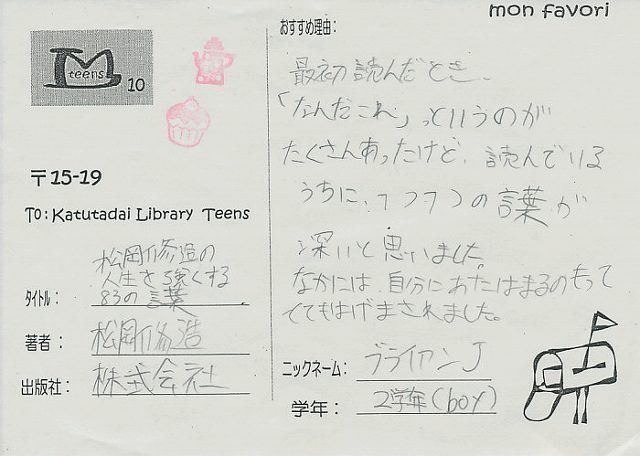 mon favori
teens 10
〒15-19
To: Katutadai Library Teens
タイトル:
松岡修造の
人生を強くする
83の言葉
著者:
松岡修造
出版社:
株式会社
おすすめ理由:
最初読んだとき、
「なんだこれ」っというのが
たくさんあったけど、読んでいる
うちに、1つ1つの言葉が
深いと思いました。
なかには、自分にあたはまるのもって
とてもはげまされました。
ニックネーム:
ブライアンJ
学年:
2学年(boy)